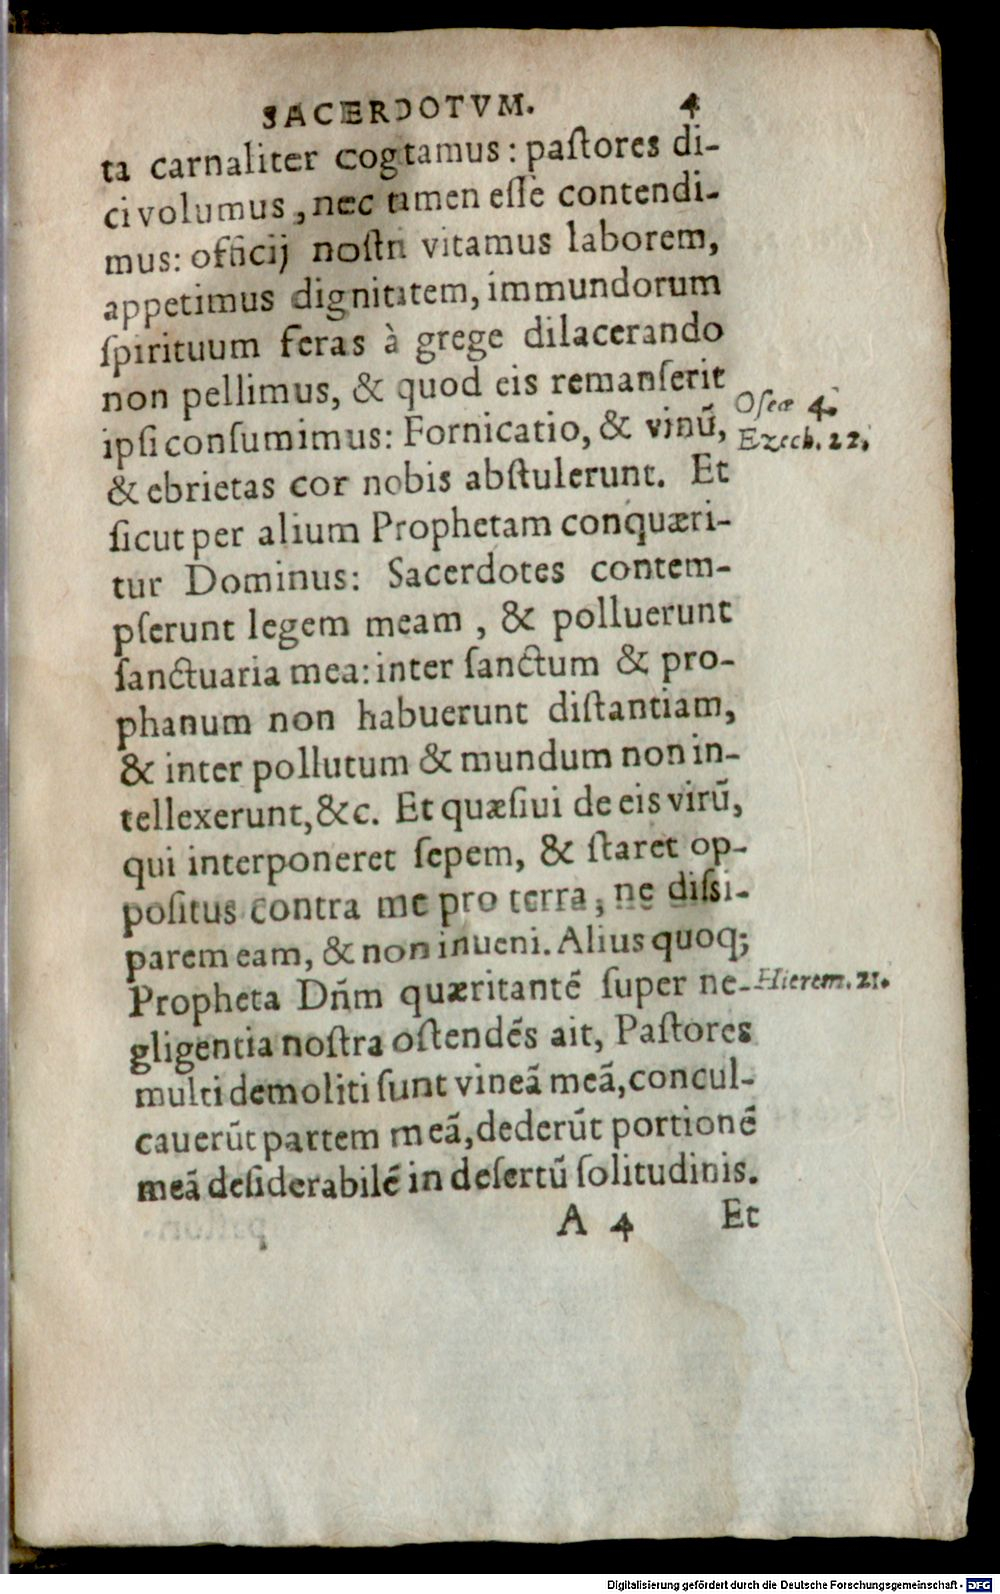 SACERDOTVM. 4
ta carnaliter cogtamus : paſtores di-
ci volumus , nec tamen eſſe contendi-
mus: officij noſtri vitamus laborem,
appetimus dignitatem, immundorum
ſpirituum feras à grege dilacerando
non pellimus, & quod eis remanſerit
ipſi conſumimus: Fornicatio, & vinũ,
Oſeæ 4.
Ezech. 22.
& ebrietas cor nobis abſtulerunt. Et
ſicut per alium Prophetam conquæri-
tur Dominus: Sacerdotes contem-
pſerunt legem meam , & polluerunt
ſanctuaria mea: inter ſanctum & pro-
phanum non habuerunt diſtantiam,
& inter pollutum & mundum non in-
tellexerunt, &c. Et quæſiui de eis virũ,
qui interponeret ſepem, & ſtaret op-
poſitus contra me pro terra , ne diſsi-
parem eam, & non inueni. Alius quoq;
Propheta Dñm quæritantẽ ſuper ne-
Hierem. 21.
gligentia noſtra oſtendẽs ait, Paſtores
multi demoliti ſunt vineã meã, concul-
cauerũt partem meã, dederũt portionẽ
meã deſiderabilẽ in deſertũ ſolitudinis.
A 4 Et
Digitalisierung gefördert durch die Deutsche Forschungsgemeinschaft - DFG